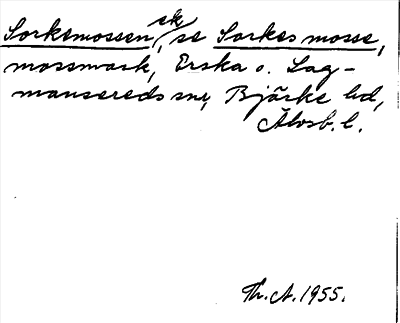 Sorkemossen, ek, se Sorkes mosse,
mossmark, Erska o. Lag-
mansereds snr, Bjärke hd,
Älvsb. l.
Th. A. 1955.